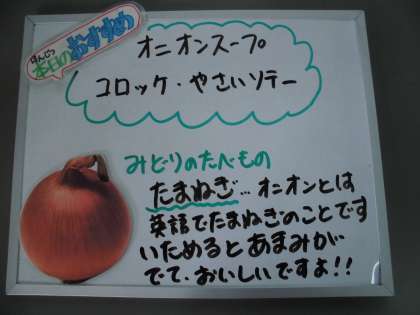 ほんじつ
本日のおすすめ
オニオンスープ
コロッケ・やさいソテー
みどりのたべもの
たまねぎ…オニオンとは
英語でたまねぎのことです
いためるとあまみが
でて、おいしいですよ!!